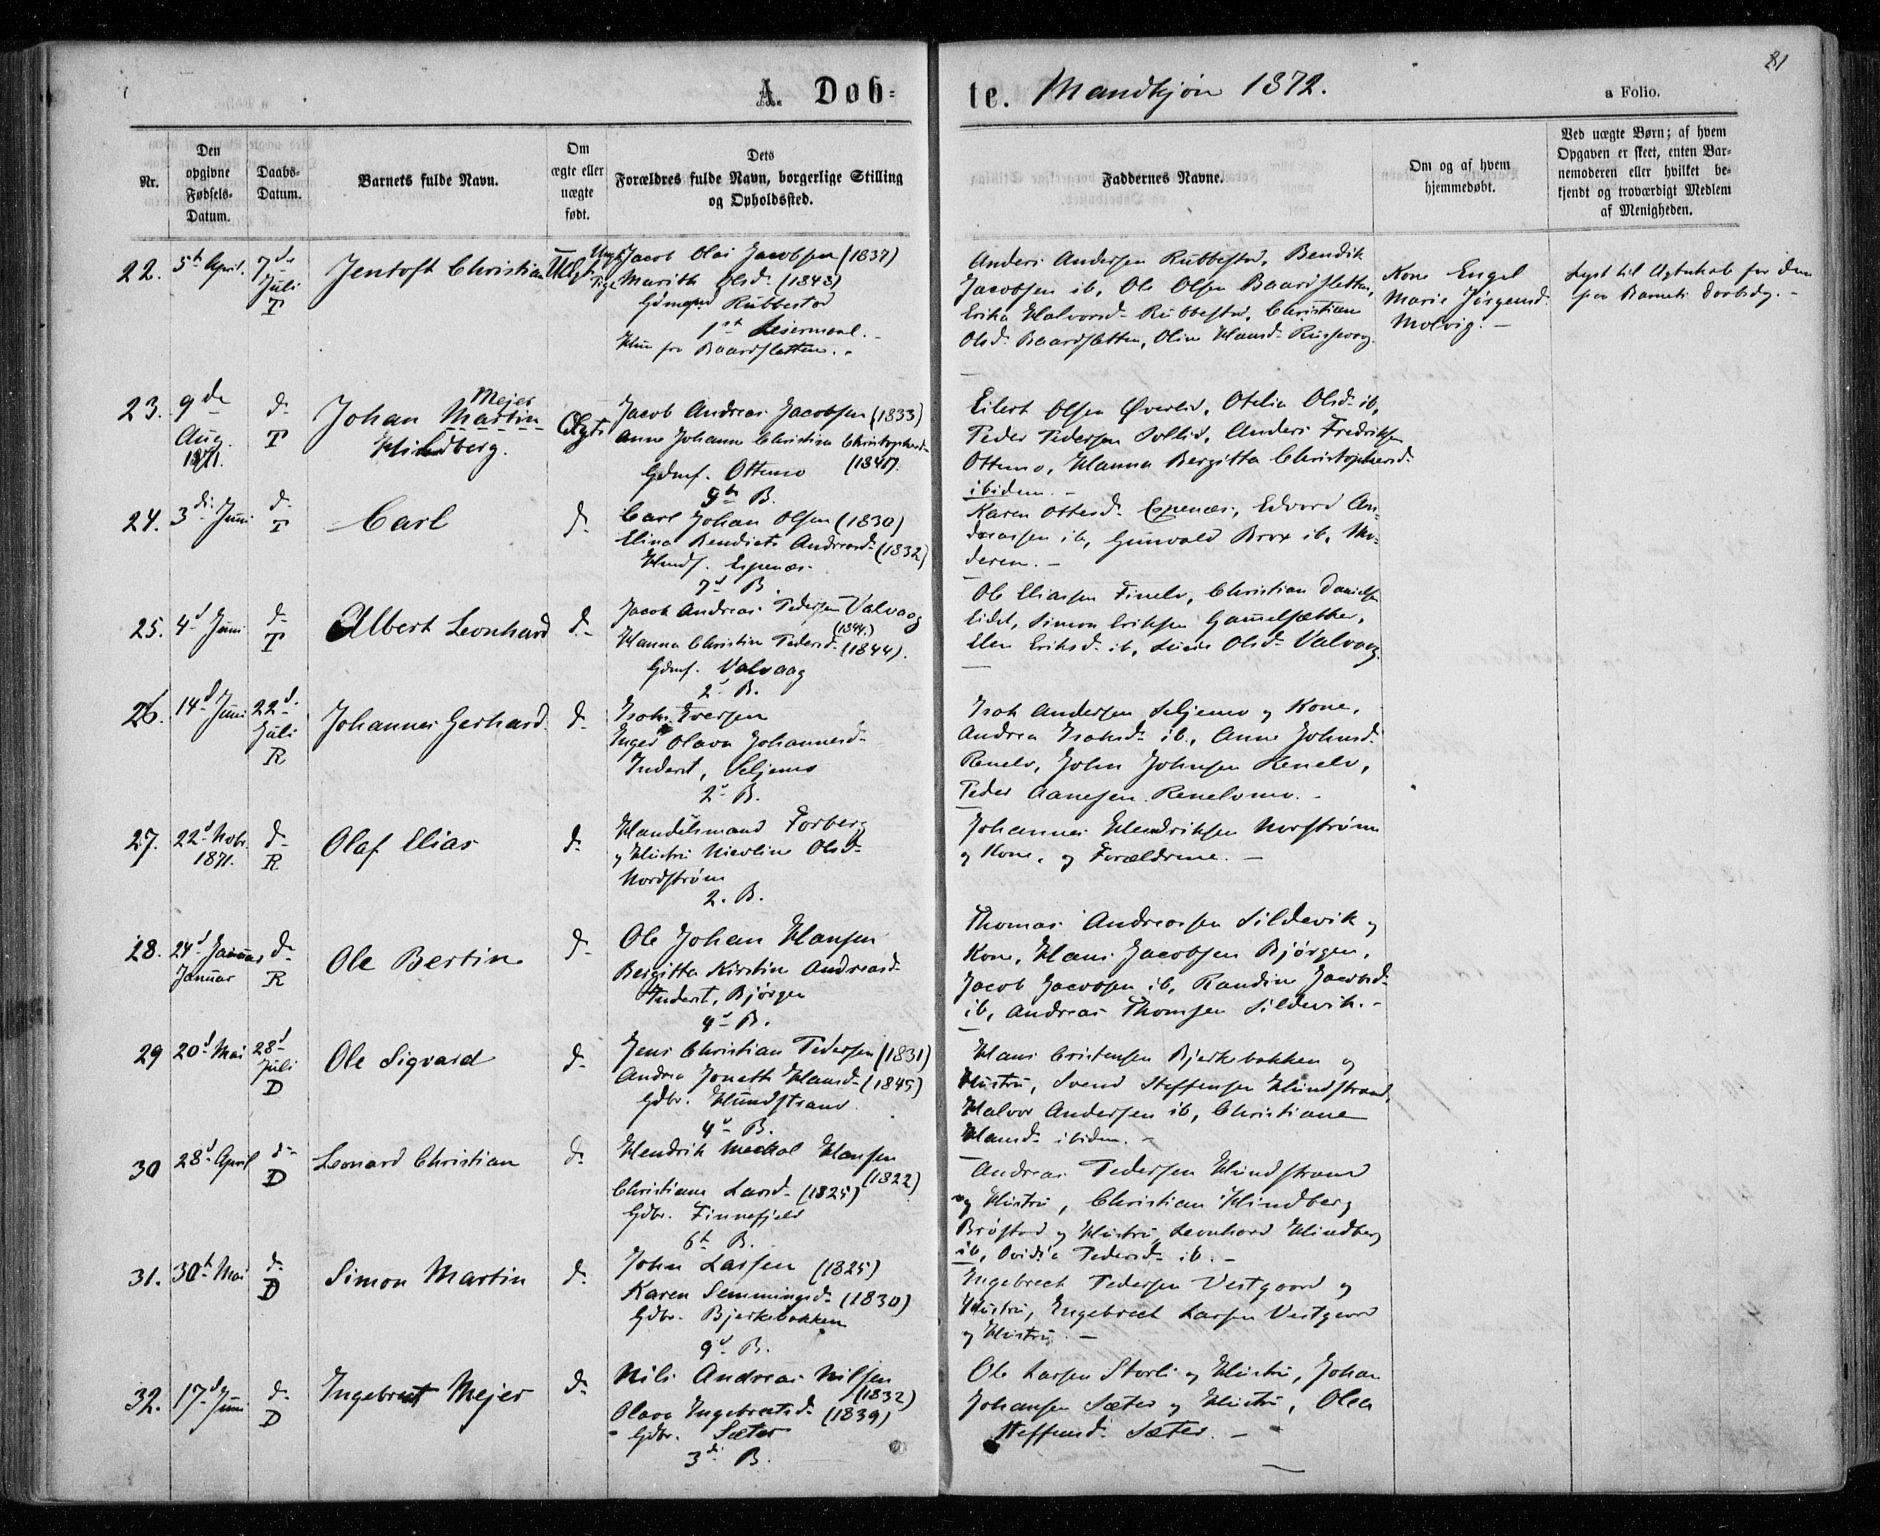 21
A Døb-te. Mandkjøn 1872.
a Folio.
Nr.
Den opgivne Fødsels-Datum.
Daabs-Datum.
Barnets fulde Navn.
Om ægte eller uægte født.
Dets Forældres fulde Navn, borgerlige Stilling og Opholdssted.
Faddernes Navne.
Om og af hvem hjemmedøbt.
Ved uægte Børn; af hvem Opgaven er skeet, enten Barnemoderen eller hvilket bekjendt og troværdigt Medlem af Menigheden.
22. 5t April. 7de Juli T
Jentoft Christian
Uægte
Ungk. Jacob Olai Jacobsen (1837)
Pige Marith Olsd. (1843)
Rubbestad
1st Leiermaal.
Hun fra Baardsletten.
Anders Andersen Rubbestad, Bendik
Jacobsen ib, Ole Olsen Baardsletten,
Erika Halvorsd. Rubbestad, Christian
Olsd. Baardsletten, Oline Hansd. Russevaag.
Kone Engel
Marie Jørgensd.
Molvig. -
Lyst til Ægteskab for dem
paa Barnets Daabsdg. -
23. 9de Aug. 1871. d. T
Johan Martin Mejer
Hindberg.
Ægte
Jacob Andreas Jacobsen (1833)
Anne Johanne Christine Christophersd.
Gdmf. Ottemo (1841).
9de B.
Eilert Olsen Øverlid, Otelia Olsd. ib,
Peder Pedersen Sollid, Anders Fredriksen
Ottemo, Hanna Bergitta Christophersd.
ibidem. -
24. 3di Juni d. T
Carl
d.
Carl Johan Olsen (1830)
Elina Bendicte Andreasd. (1832)
Husf. Espenæs
7d B.
Karen Ottesd. Espenæs, Edvard An-
dreassen ib, Gunvald Brox ib, Mo-
deren. -
25. 4d Juni d. T
Albert Leonhard
d.
Jacob Andreas Pedersen Valvaag
(1844.)
Hanna Christin Pedersd. (1844).
Gdmf. Valvaag
2d B.
Ole Eliassen Finelv, Christian Danielsen
Eidet, Simon Eriksen Gammelsæther,
Elen Eriksd. ib, Olsd. Valvaag.
26. 14d Juni 22d Juli R
Johannes Gerhard
d.
Isak Iversen
Inger Olava Johannesd.
Inderst, Seljemo
2d B.
Isak Andersen Seljemo og Kone,
Andrea Isaksd. ib., Anne Johnsd.
Renelv, John Johnsen Renelv,
Peder Aanesen Renelvmo. -
27. 22d Nobr. 1871. d. R
Olaf Elias
d.
Handelsmand Forberg
og Hustru Nicoline Olsd.
Nordstrøm
2. B.
Johannes Hendriksen Norstrøm
og Kone, og Forældrene. -
28. 24d Januar Januar d. R
Ole Bertin
d.
Ole Johan Hansen
Bergitta Kirstine Andreasd.
Inderst, Bjørgen
4d B.
Thomas Andreassen Sildevik og
Kone, Hans Jacobsen Bjørgen,
Jacob Jacobsen ib, Randine Jacobsd.
ib, Andreas Thomsen Sildevik. -
29 20d Mai 28d Juli D
Ole Sigvard
d.
Jens Christian Pedersen (1831)
Andrea Joneth Hansd. (1845)
Gdbr. Hundstrand.
4d B.
Hans Cristensen Bjerkebakken og
Hustru, Svend Steffensen Hundstrand,
Halvor Andersen ib, Christiane
Hansd. ibidem. -
30 28d April d. D
Leonard Christian
d.
Hendrik Meckal Hansen
(1822)
Christiane Larsd. (1825)
Gdbr. Finnefjeld
6t B.
Andreas Pedersen Hundstrand
og Hustru, Christian Hindberg
Brøstad og Hustru, Leonhard Hindberg
ib, Ovidia Pedersd. ib. -
31. 30t Mai d. D
Simon Martin
d.
John Larsen (1825)
Karen Semmingsd. (1830)
Gdbr. Bjerkebakken
9d B.
Engebrect Pedersen Vestgaard og
Hustru, Engebrect Larsen Vestgaard
og Hustru. -
32. 17d Juni d. D
Ingebret Mejer
d.
Nils Andreas Nilsen
(1832)
Olava Ingebretsd. (1839)
Gdbr. Sæter
3di B.
Ole Larsen Storli og Hustru, Johan
Johansen Sæter og Hustru, Olea
Steffensd. Sæter. -